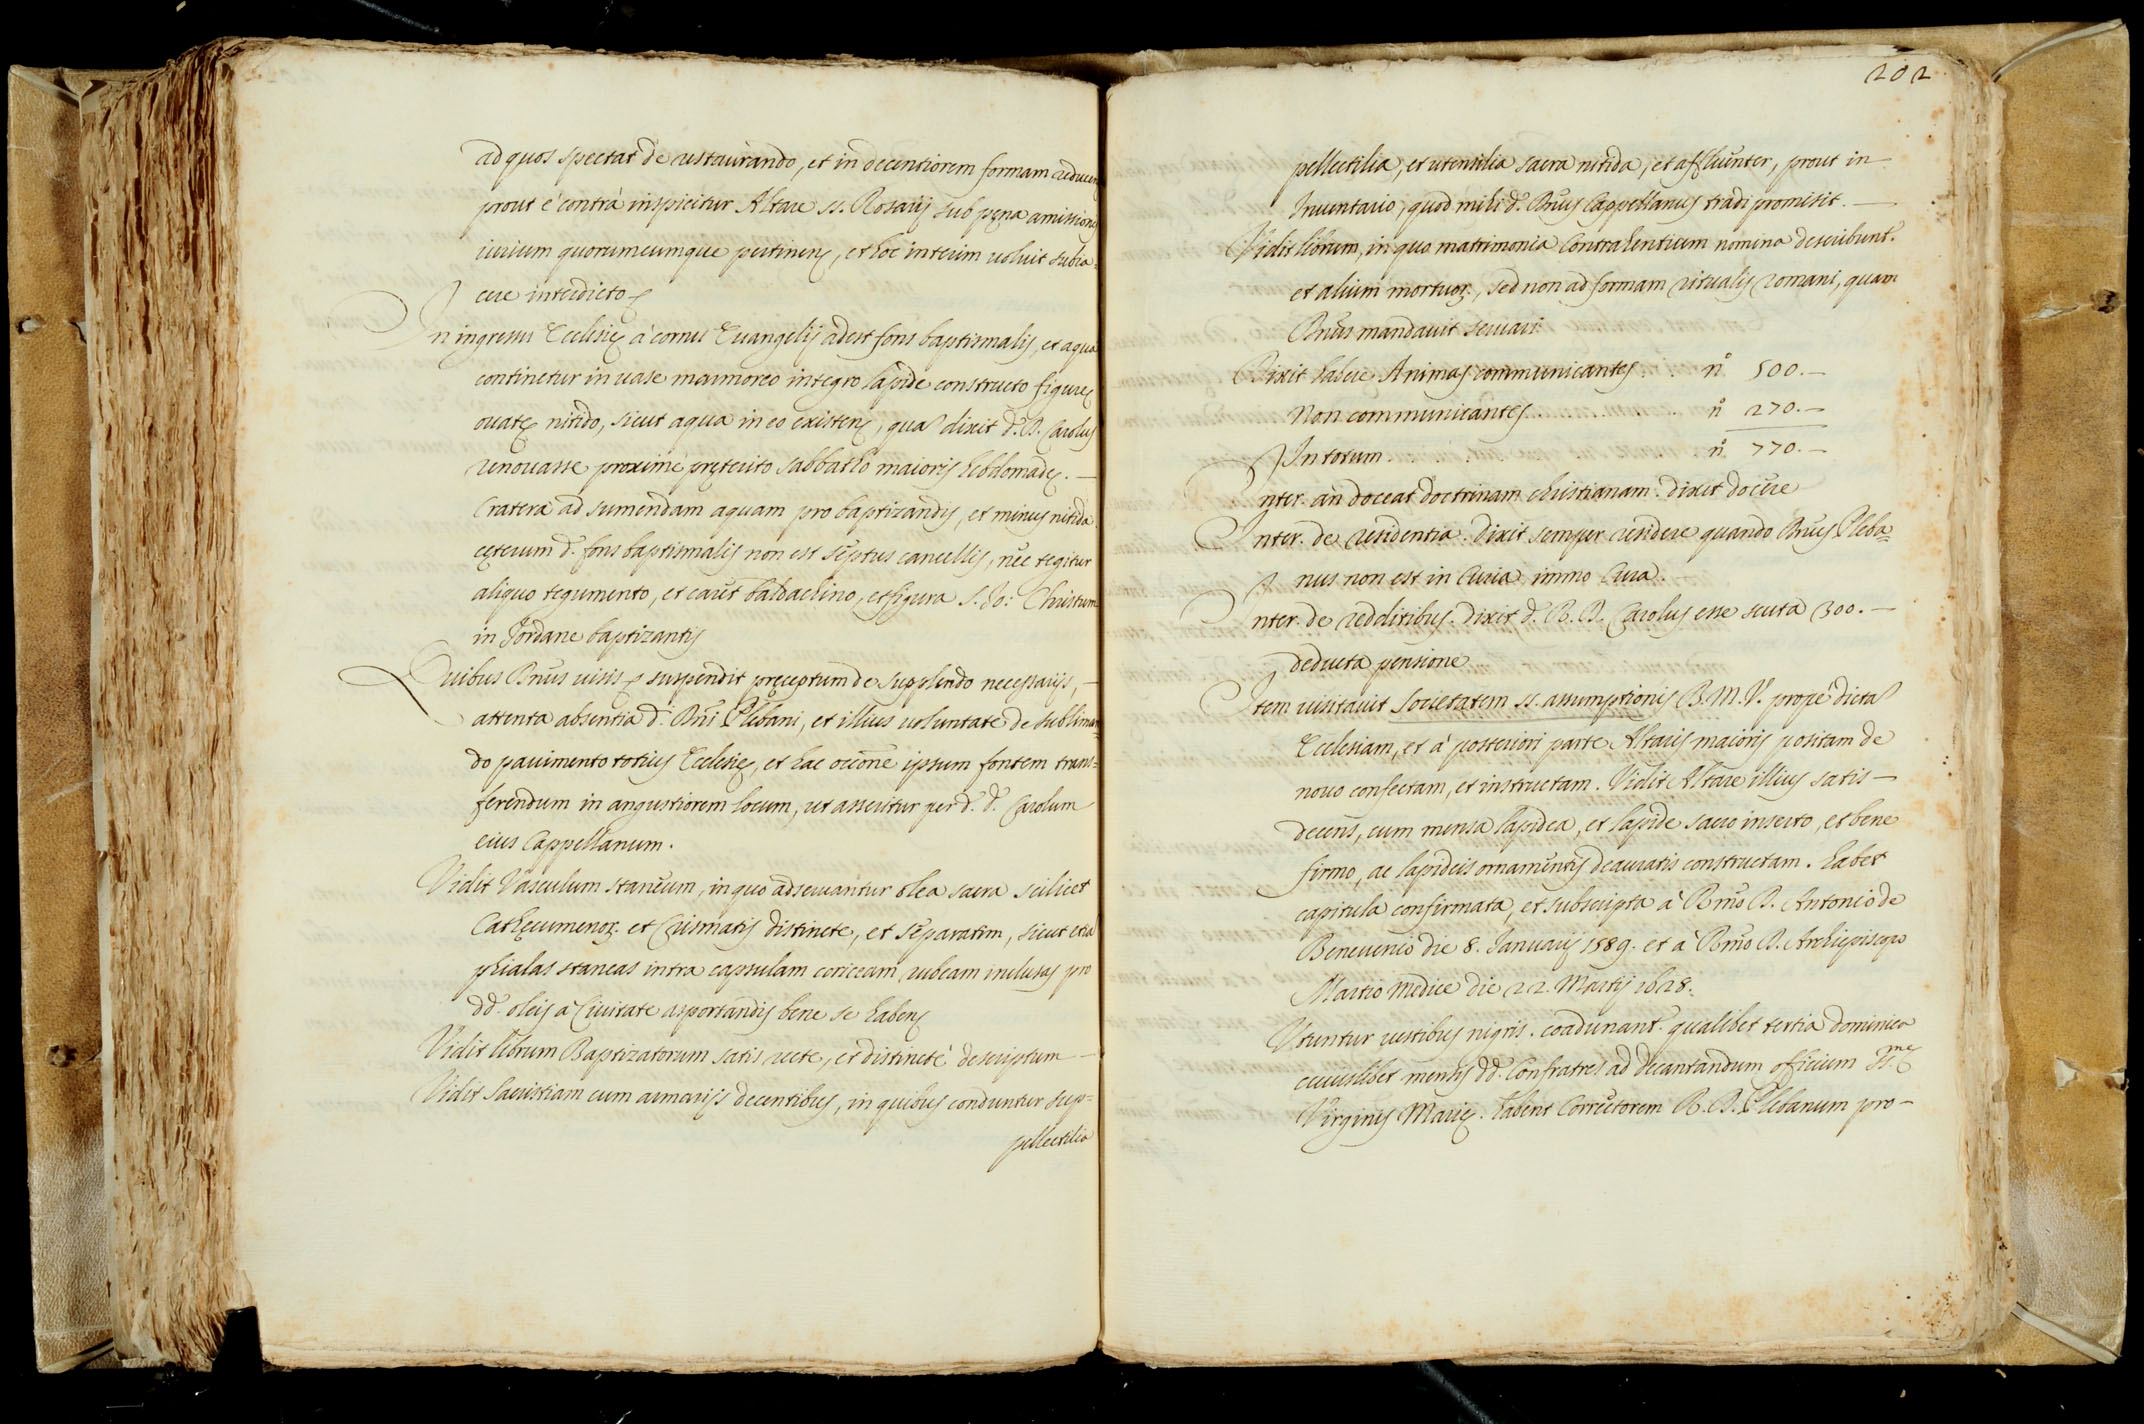 ad quos spectat de restaurando, et in decentiorem formam reducen
prout è contrà inspicitur Altare ss. Rosarij sub pęna amissionis
iurium quorumcumque pertinens, et hoc interim voluit subia-
cere interdicto
In ingressu Ecclesię à cornu Euangelij adest fons baptismalis, et aqua
continetur in uase marmoreo integro lapide constructo figurę
ouatę nitido, sicut aqua in eo existens, qua dixit d. D. Carolus
renouasse proximè pręterito sabbatho maioris hebdomadę. —
Cratera ad sumendam aquam pro baptizandis, et minus nitida
cęterum d. fons baptismalis non est septus cancellis, nec tegitur
aliquo tegumento, et caret baldachino, et figura S. Io: Christum
in Iordane baptizantis
Quibus Dnus visis suspendit pręceptum de supplendo necessarijs, —
attenta absentia d. Dni Plebani, et illius voluntate de subliman=
do pauimento totius Ecclesię, et hac occone ipsum fontem trans=
ferendum in angustiorem locum, ut asseritur per d. d. Carolum
eius Cappellanum.
Vidit Vasculum staneum, in quo adseruantur olea sacra scilicet
Cathęcumenoꝝ et Crismatis distincte, et separatim, sicut etia
phialas staneas intra capsulam coriceam rubeam inclusas pro
dd. oleis à Ciuitate asportandis bene se habens
Vidit librum Baptizatorum satis recte, et distinctè descriptum —
Vidit Sacristiam cum armarijs decentibus, in quibus conduntur sup=
pellectilia
202
pellectilia, et utensilia sacra nitida, et affluunter, prout in
Inuentario, quod mihi d. Dnus Cappellanus tradi promisit. —
Vidit librum, in quo matrimonia Contrahentium nomina describunt.
et alium mortuoꝝ, sed non ad formam ritualis romani, quam
Dnus mandauit seruari
Dixit habere Animas communicantes . . n.º 500. —
Non communicantes . . . . n.º 270. —
In totum . . . . n.º 770. —
Inter. an doceat doctrinam christianam. dixit docere
Inter. de residentia. dixit semper residere quando Dnus Pleba=
nus non est in Curia immo Cura.
Inter. de redditibus. dixit d. R. D. Carolus esse scuta 300. —
deducta pensione
Item uisitauit societatem ss. assumptionis B. M. V. propè dicta
Ecclesiam, et à posteriori parte Altaris maioris positam de
nouo confectam, et instructam. Vidit Altare illius satis —
decens, cum mensa lapidea, et lapide sacro inserto, et bene
firmo, ac lapideis ornamentis deauratis constructam. habet
capitula confirmata, et subscripta à Rmo D. Antonio de
Beneuenio die 8. Ianuarij 1589. et à Rmo D. Archiepiscopo
Martio medice die 22. Martij 1628.
Vtuntur uestibus nigris. coadunant. qualibet tertia dominica
cuiuslibet mensis dd. Confratres ad decantandum officium ss.mę
Virginis Marię. habent Correctorem R. D. Plebanum pro —